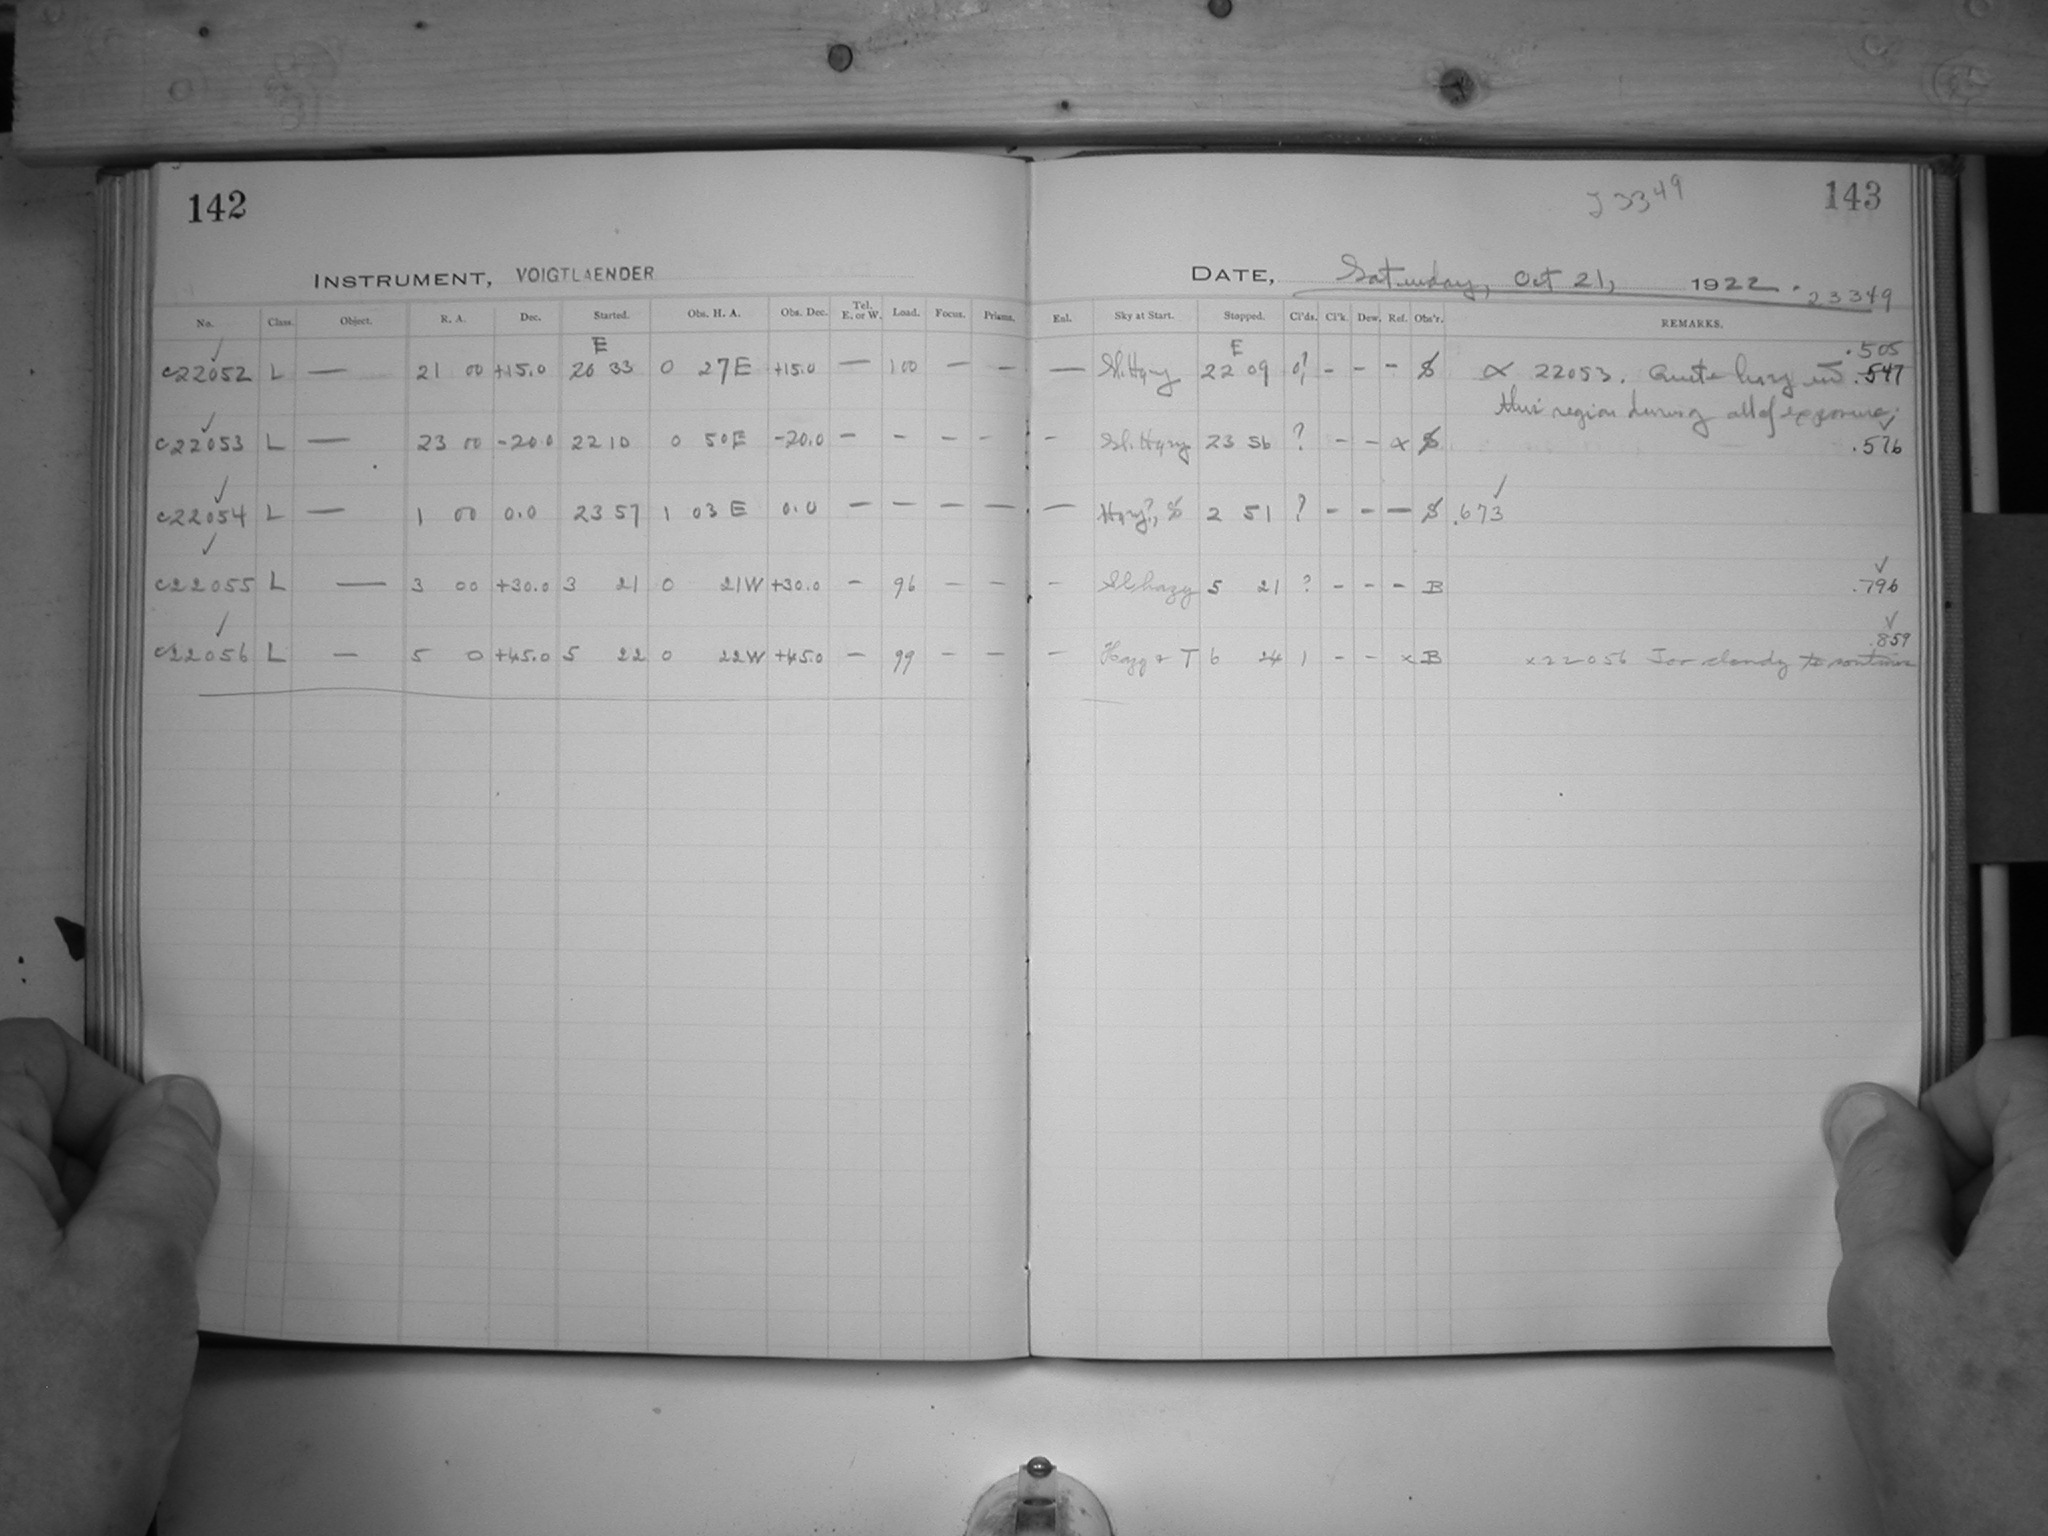 142
INSTRUMENT, VOIGTLAENDER
No. Class. Object. R. A. Dec. Started. Obs. H. A. Obs. Dec. Tel. E. or W. Load. Focus. Prisms.
E
c22052 L — 21 00 +15.0 20 33 0 27 E +15.0 — 100 — —
c22053 L — 23 00 -20.0 22 10 0 50 E -20.0 — - - -
c22054 L — 1 00 0.0 23 57 1 03 E 0.0 — — — —
c22055 L — 3 00 +30.0 3 21 0 21 W +30.0 - 96 - -
c22056 L — 5 0 +45.0 5 22 0 22 W +45.0 - 99 - -
23349 143
DATE, Saturday, Oct 21, 1922. .23349
Enl. Sky at Start. Stopped. Cl'ds. Cl'k. Dew. Ref. Obs'r. REMARKS.
E .505
— Sl. Hazy 22 09 - - - $ ∝ 22053. Quite hazy in .547
this region during all of exposure.
- Sl. Hazy 23 56 ? - - x $ .576
— Hazy?, $ 2 51 ? - - — $ .673
- Sl hazy 5 21 ? - - - B .796
.859
- Hazy + T 6 24 1 - - x B x22056 Too cloudy to continue